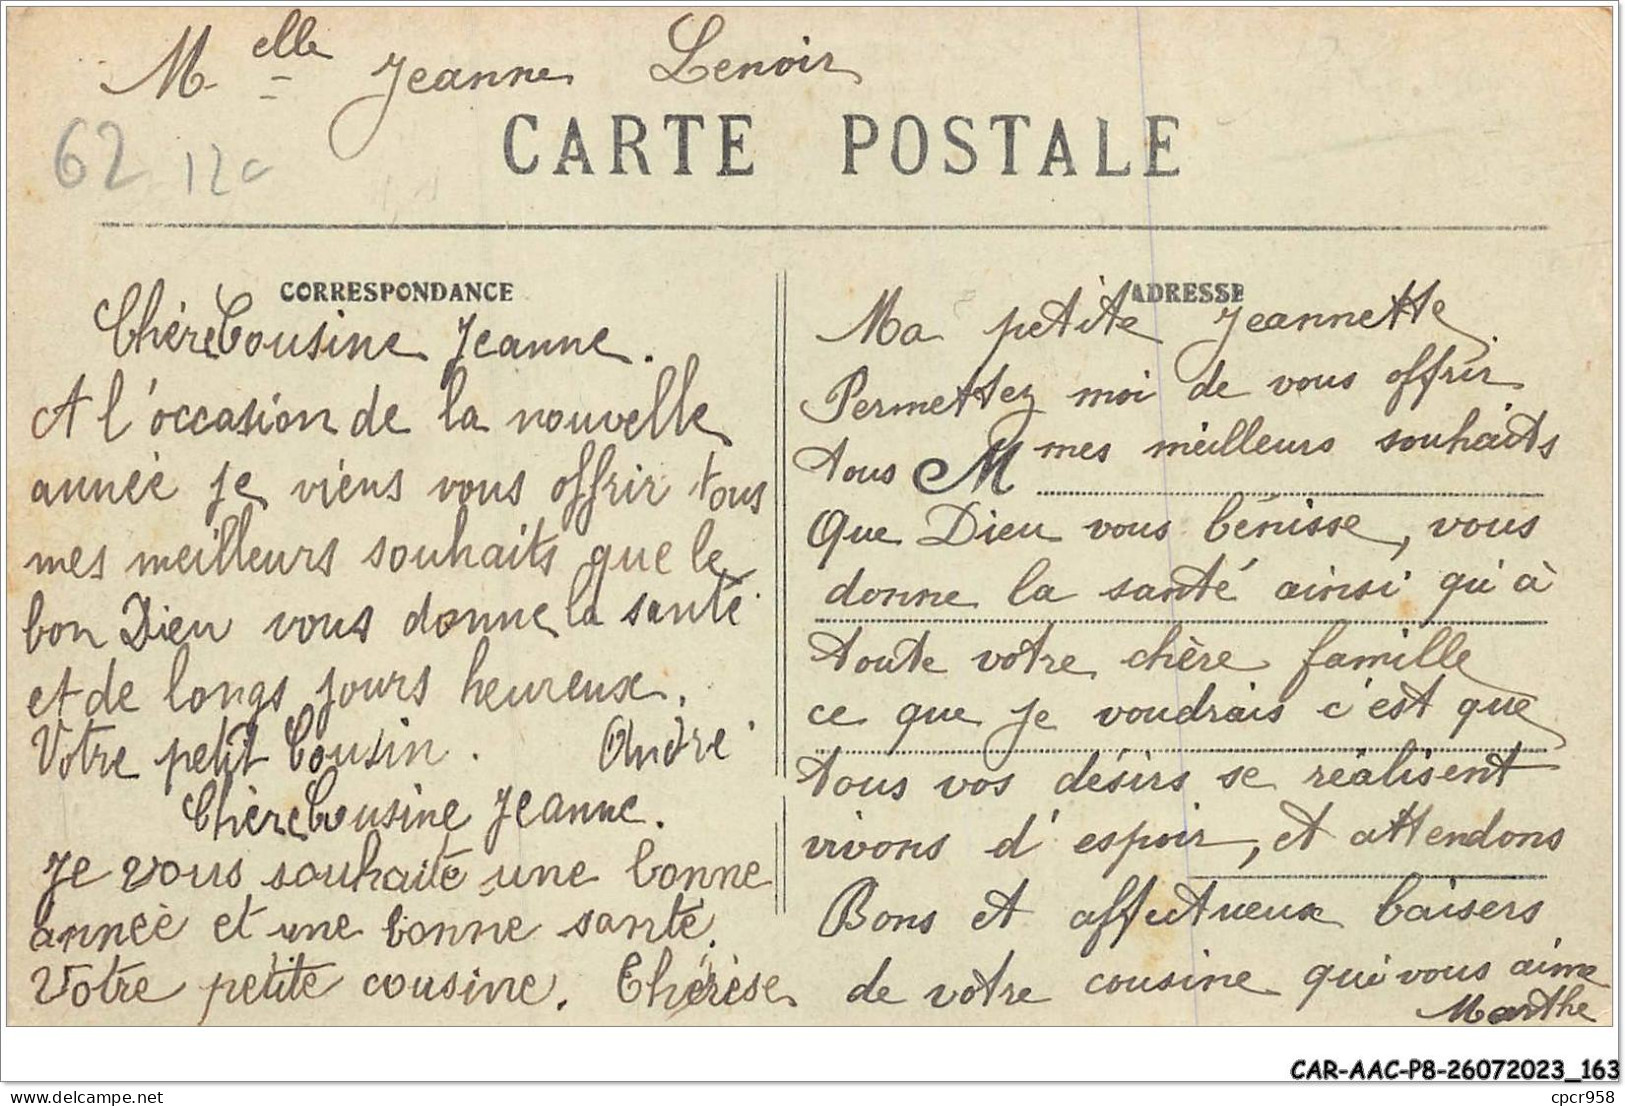 Melle Jeanne Lenoir
CARTE POSTALE
62 12c
CORRESPONDANCE
Chère Cousine Jeanne.
A l'occasion de la nouvelle
année je viens vous offrir tous
mes meilleurs souhaits que le
bon Dieu vous donne la santé
et de longs jours heureux.
Votre petit Cousin. André
Chère Cousine Jeanne.
Je vous souhaite une bonne
année et une bonne santé.
Votre petite cousine. Thérèse
ADRESSE
Ma petite Jeannette
Permettez moi de vous offrir
tous M mes meilleurs souhaits
Que Dieu vous bénisse, vous
donne la santé ainsi qu'à
toute votre chère famille
ce que je voudrais c'est que
tous vos désirs se réalisent
vivons d'espoir, et attendons
Bons et affectueux baisers
de votre cousine qui vous aime
Marthe
CAR-AAC-P8-26072023_163
delcampe.net
cpcr958